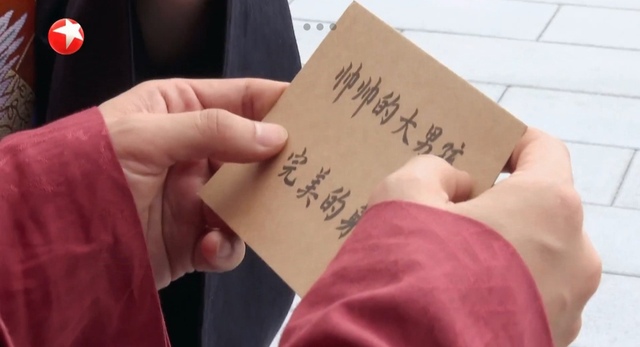 帅帅的大男孩
完美的